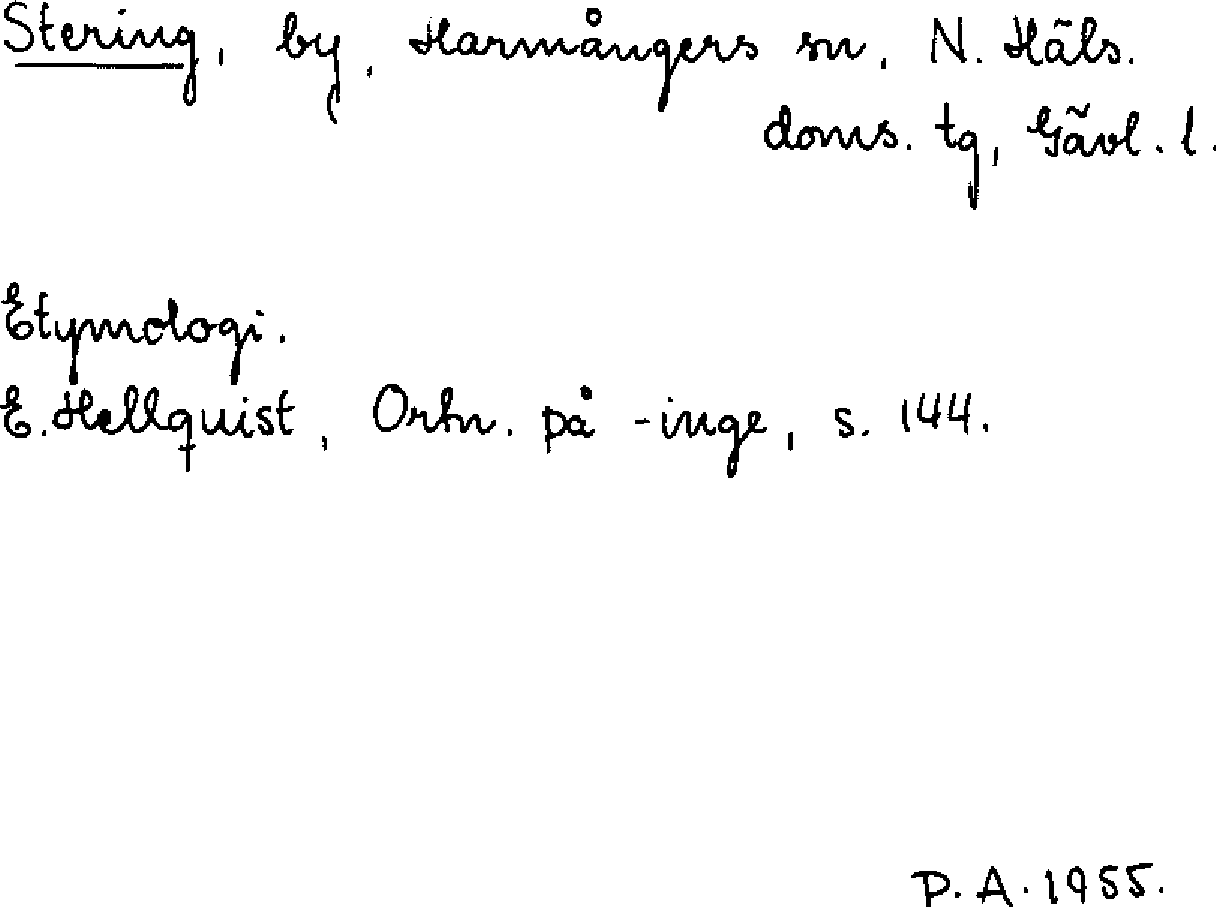 Stering, by, Harmångers sn, N. Häls.
doms. tg, Gävl. l.
Etymologi.
E. Hellquist, Ortn. på -inge, s. 144.
P. A. 1955.